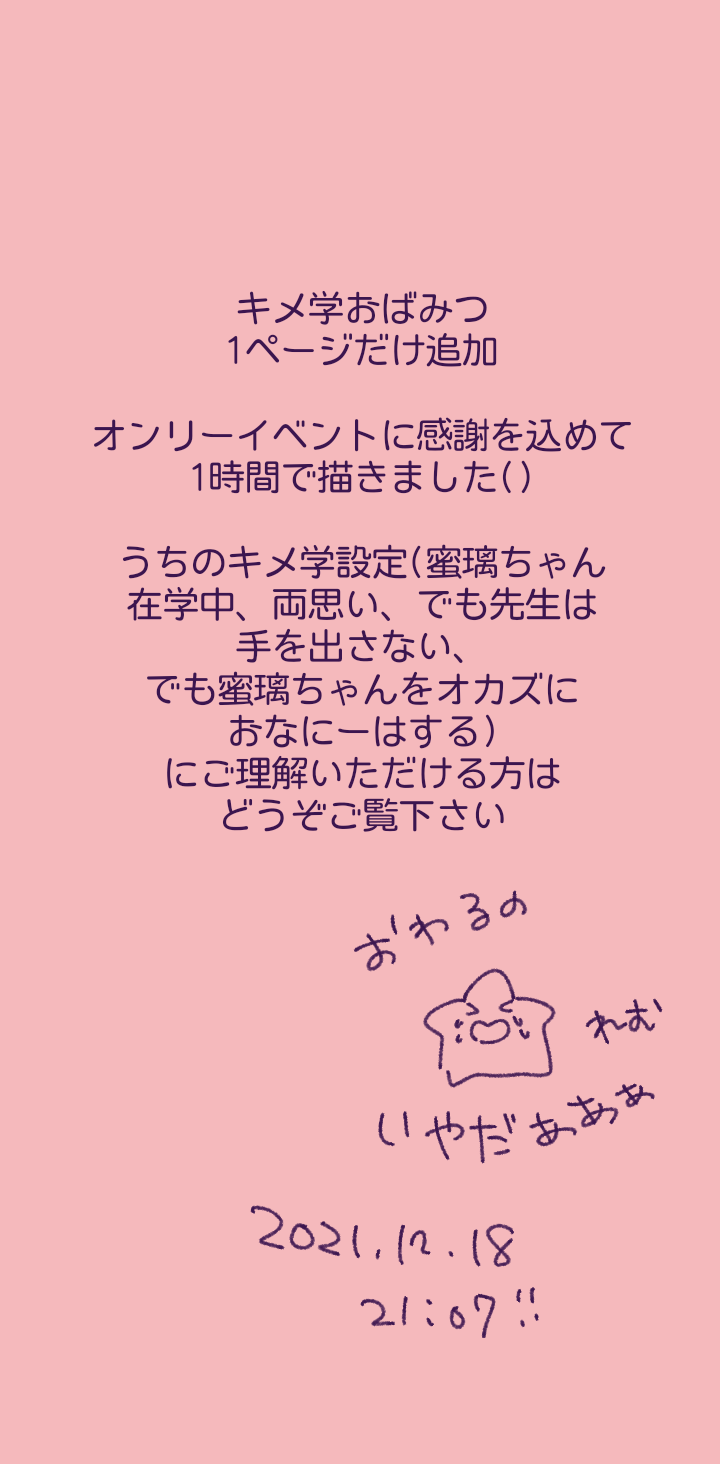 キメ学おばみつ
1ページだけ追加
オンリーイベントに感謝を込めて
1時間で描きました()
うちのキメ学設定(蜜璃ちゃん
在学中、両思い、でも先生は
手を出さない、
でも蜜璃ちゃんをオカズに
おなにーはする)
にご理解いただける方は
どうぞご覧下さい
おわるの
れむ
いやだぁぁぁ
2021.12.18
21:07!!